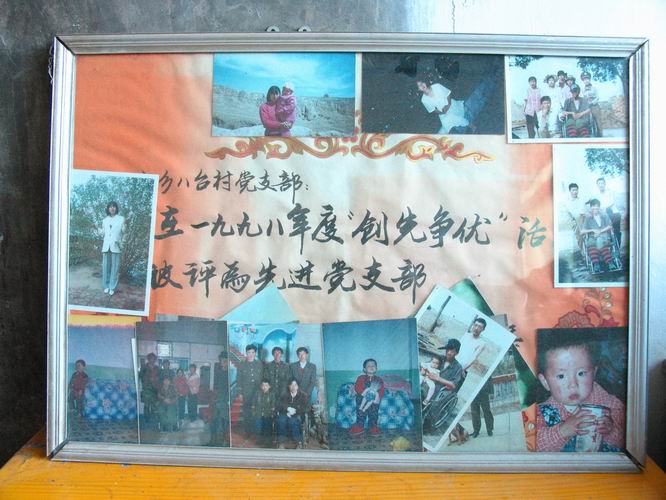 乡八台村党支部:
在一九九八年度“创先争优”活
被评为先进党支部